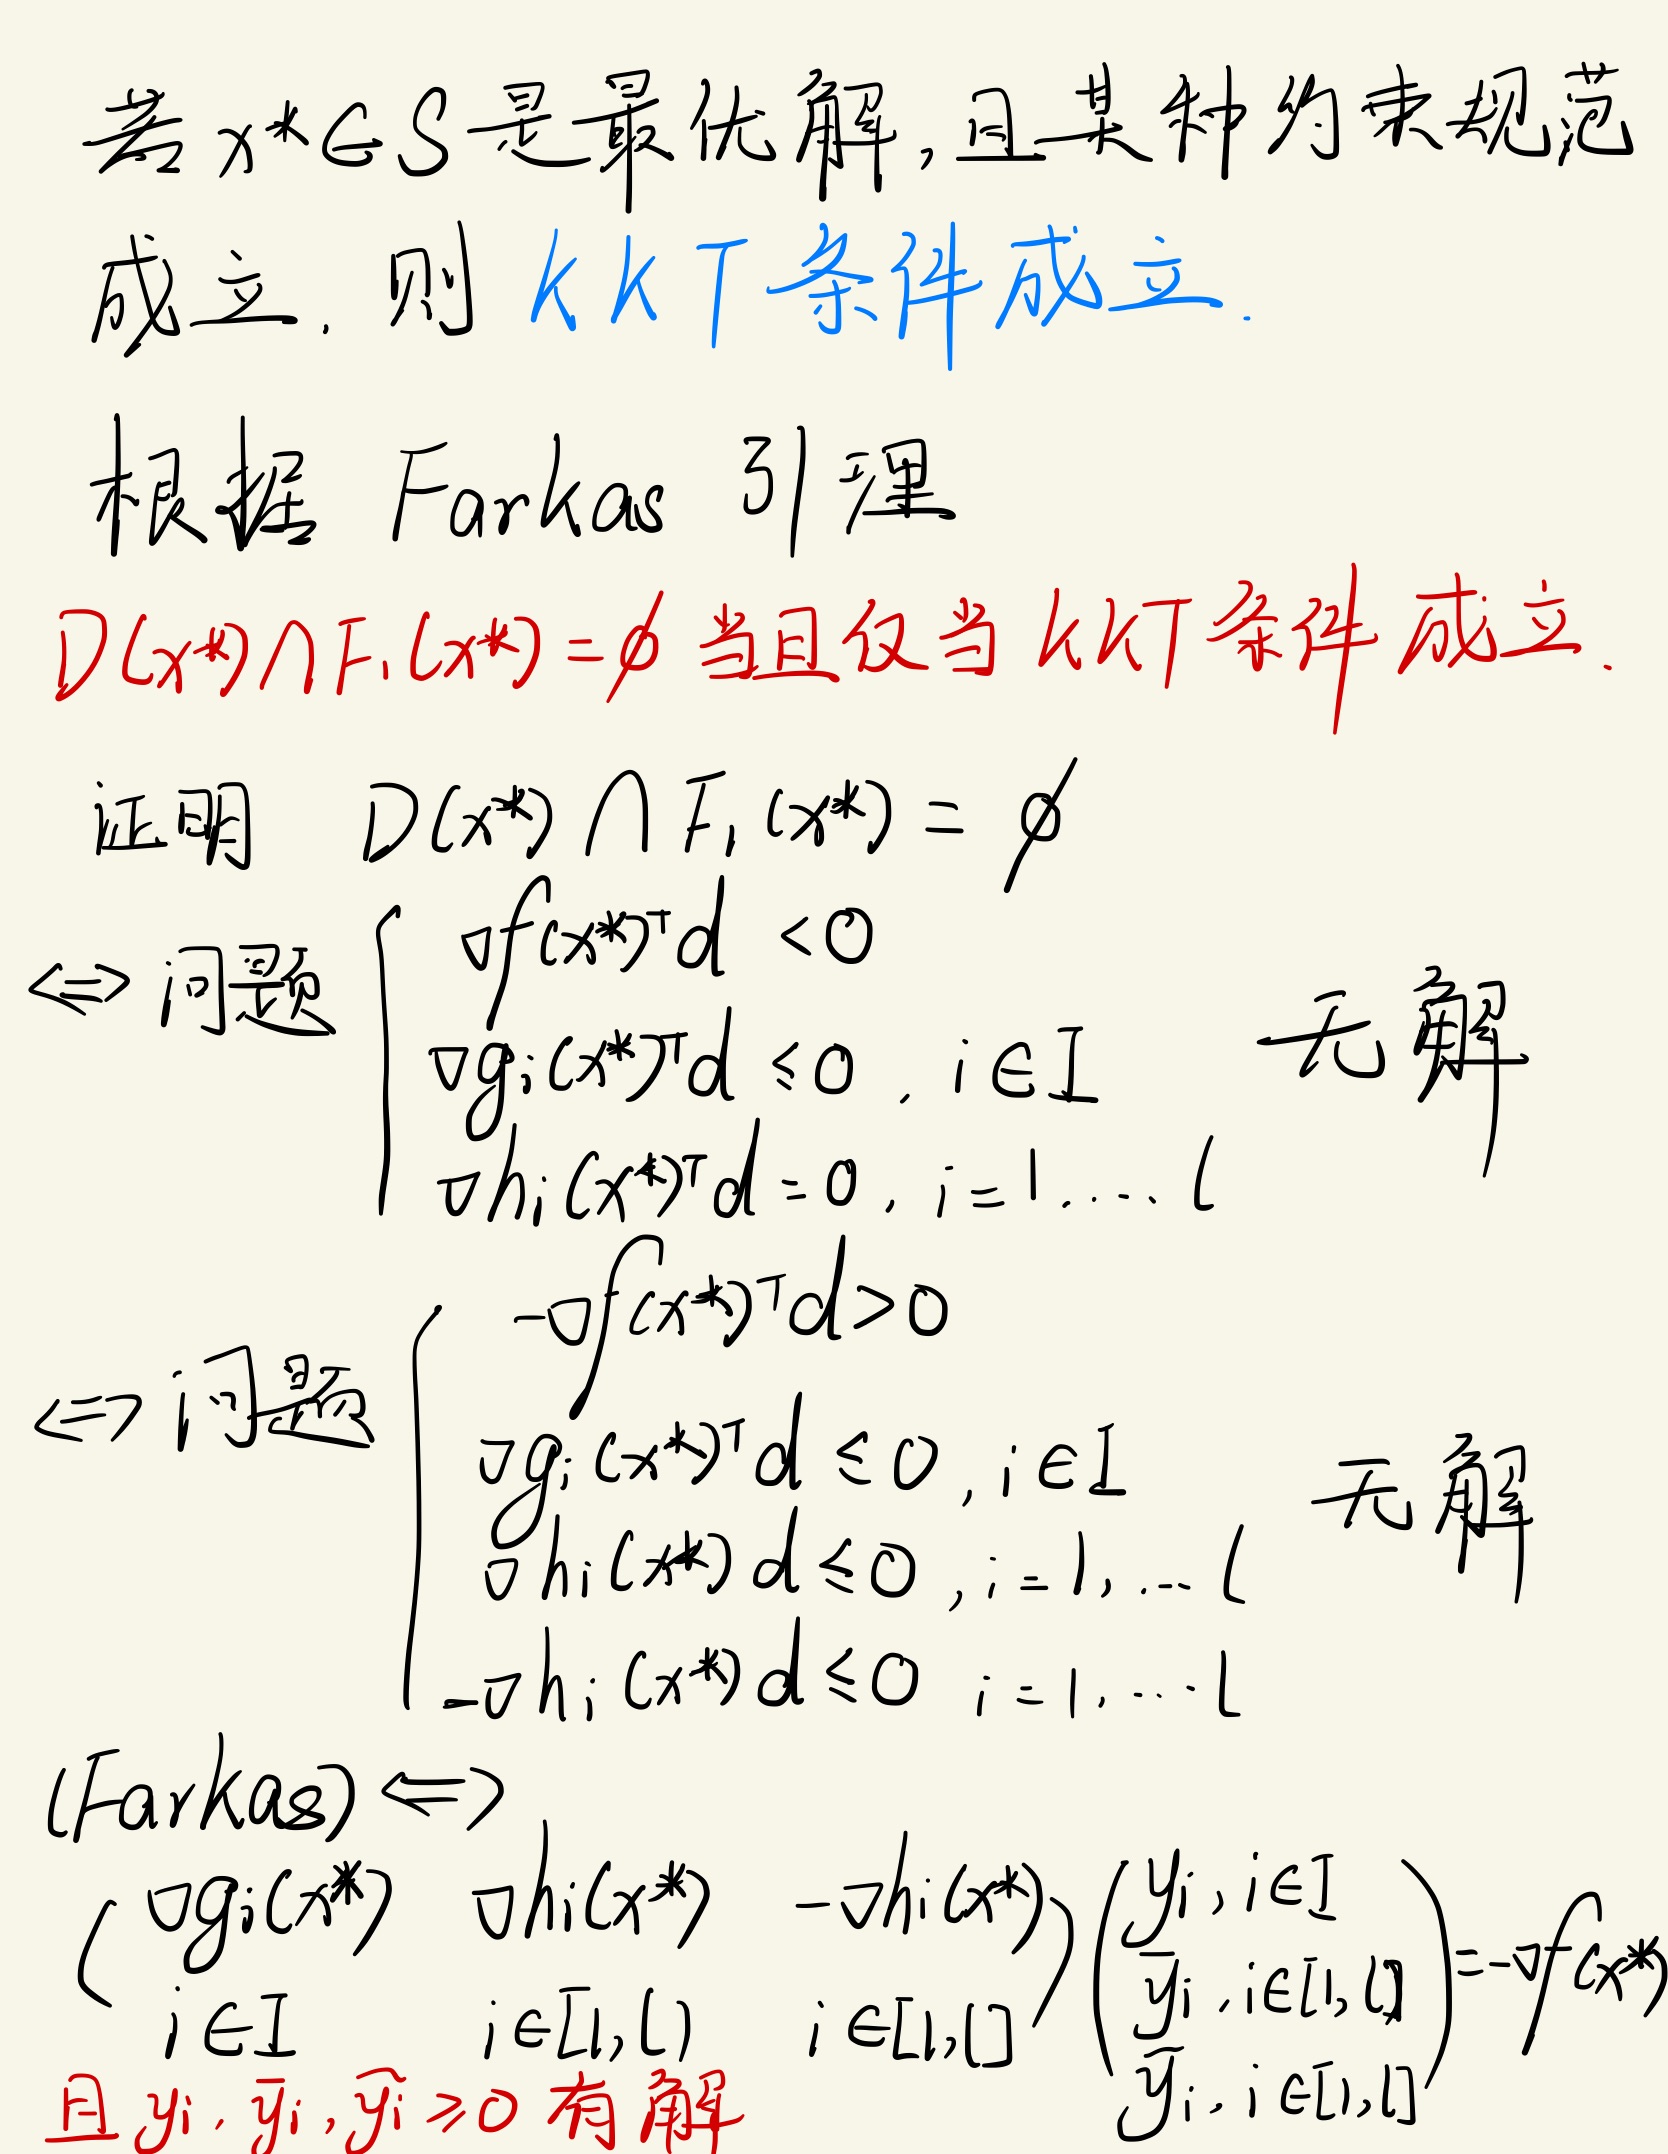 若 x*∈S是最优解,且某种约束规范
成立, 则 KKT条件成立.
根据 Farkas 引理
D(x*)∩F₁(x*)=∅ 当且仅当 KKT条件成立.
证明 D(x*)∩F₁(x*)=∅
∇f(x*)ᵀd <0
⇔ 问题 ∇gᵢ(x*)ᵀd ≤0, i∈I 无解
∇hᵢ(x*)ᵀd=0, i=1,...,l
-∇f(x*)ᵀd>0
⇔ 问题 ∇gᵢ(x*)ᵀd ≤0, i∈I 无解
∇hᵢ(x*)d≤0, i=1,...l
-∇hᵢ(x*)d≤0 i=1,...l
(Farkas) ⇔
(∇gᵢ(x*) ∇hᵢ(x*) -∇hᵢ(x*)) (yᵢ, i∈I
i∈I i∈[1,l) i∈[1,l] ȳᵢ, i∈[1,l] =-∇f(x*)
ỹᵢ, i∈[1,l])
且 yᵢ, ȳᵢ, ỹᵢ ≥0 有解